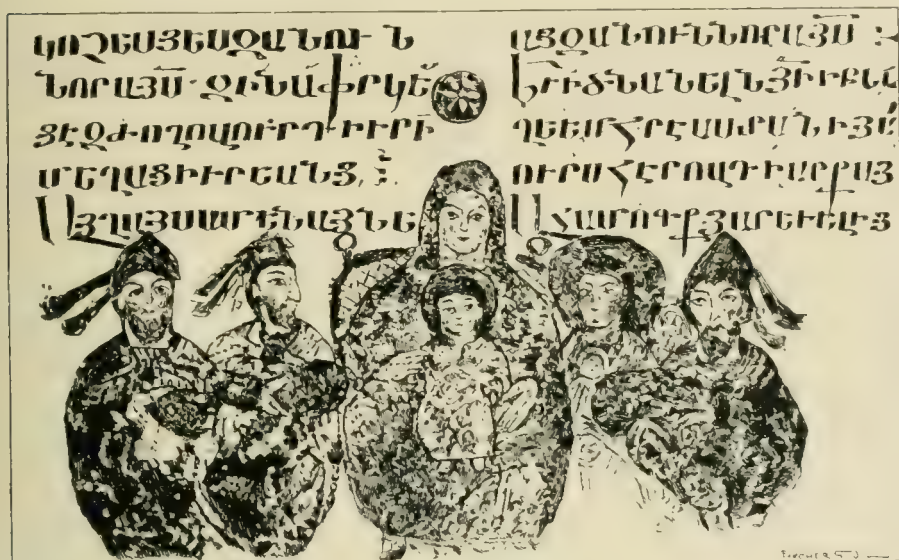 ԿՈՉԵՍՑԵՍԶԱՆՈՒՆ
ՆՈՐԱՅՍ ԶԻՆԱՓՐԿԵ
ՑԷԶԺՈՂՈՎՈՒՐԴԻՒՐԻ
ՄԵՂԱՑԻՒՐԵԱՆՑ
ԱՅՂԱՅՍԱՄԵՆԱՅՆԵ
ԱՑԶԱՆՈՒՆՆՈՐԱՅՍ :
ՂԵԵՄՀՐԷԱՍՏԱՆԻՅԱ
ՈՒՐՍՀԷՐՈՎԴԻԱՐՔԱՅ
ԱՀԱՄՈԳՔՅԱՐԵՒԵԼԻՑ